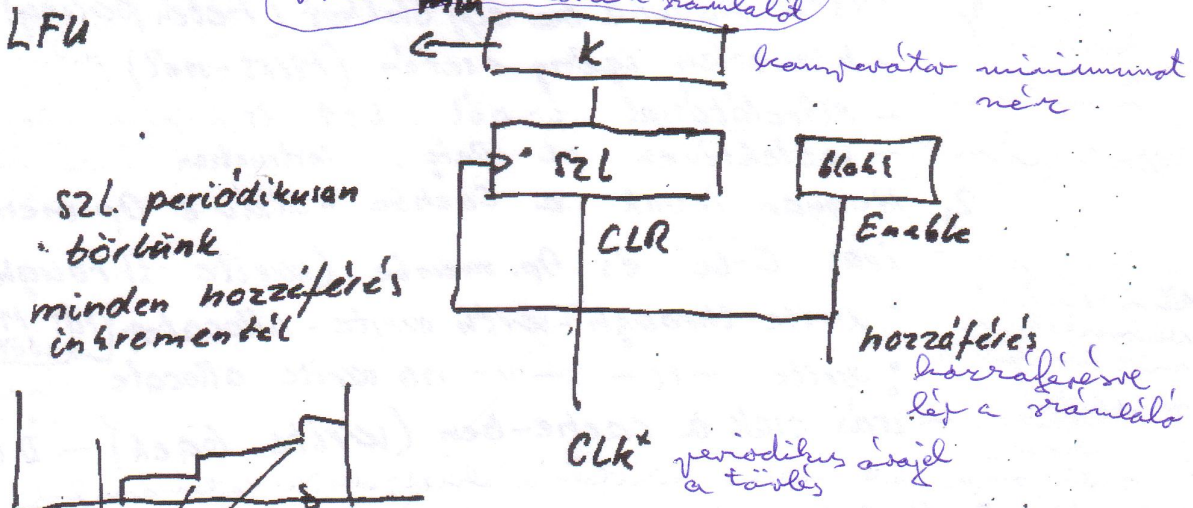 számlálót
LFU
min
K
komparátor minimumot
néz
szl
bloks
szl periódikusan
törlünk
minden hozzáférés
inkrementál
CLR
Enable
hozzáférés
hozzáférésre
lép a számláló
CLK*
periodikus órajel
a törlés